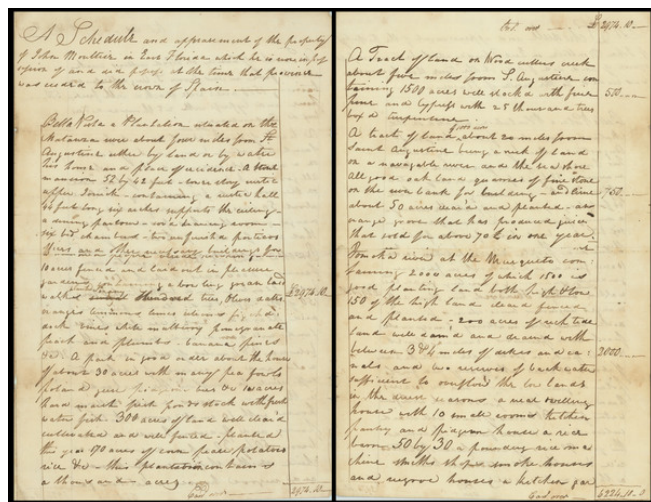 A Schedule and appraisement of the property
of John Moultrie in East Florida which he is now in pos
session of and did possess at the time that province
was ceded to the crown of Spain
Bella Vista a Plantation situated on the
Matanza river about four miles from St
Augustine either by land or by water
his house and place of residence. A stone
mansion 52 by 42 feet - lower story
upper - containing a hall
40 feet long six arches supports the ceiling -
a dining parlour - drawing room -
six bed chambers - two unfinished porticos
and other buildings for
10 acres fenced and laid out in pleasure
gardens a bowling green
walks planted trees, Olives dates
oranges lemons limes citrons figs
vines white mulberry pomegranate
peach and plumbs - banana pines
&c. A park in good order about the house
of about 30 acres with many pea fowls
poland geese &c 10 acres
hard marsh fish ponds stock with fresh
water fish. 300 acres of land well clear'd
cultivated and well fenced - planted
this year 170 acres of corn pease potatoes
rice &c - this plantation contains
a thousand acres
£2974.10
Card over
2974.10
Card over £2974.10
A Tract of land on Wood cutters creek
about five miles from St. Augustine con
taining 1500 acres well stocked with fine
pine and cypress with 25 thousand trees
box'd turpentine
500
A tract of land, about 20 miles from
Saint Augustine being a neck of land
on a navagable river and the sea shore
All good oak land quarries of fine stone
on the river bank for building - and lime
about 50 acres clear'd and planted - an
orange grove that has produced juice
that sold for above 70£ in one year.
750
river at the Musqueto con-
taining 2000 acres of which 1500 is
good planting land both high & low
150 of the high land clear'd fenced
and planted - 200 acres of rich tide
land well dam'd and drained with
between 3 & 4 miles of dykes and ca
nals - and two reserves of back water
sufficient to overflow the low lands
in the driest seasons a neat dwelling
house with 10 small rooms kitchen
pantry and pidgeon house a rice
barn 50 by 30 a pounding rice ma
chine smiths shops smoke houses
and negroe houses a kitchen gar
3000
Card over